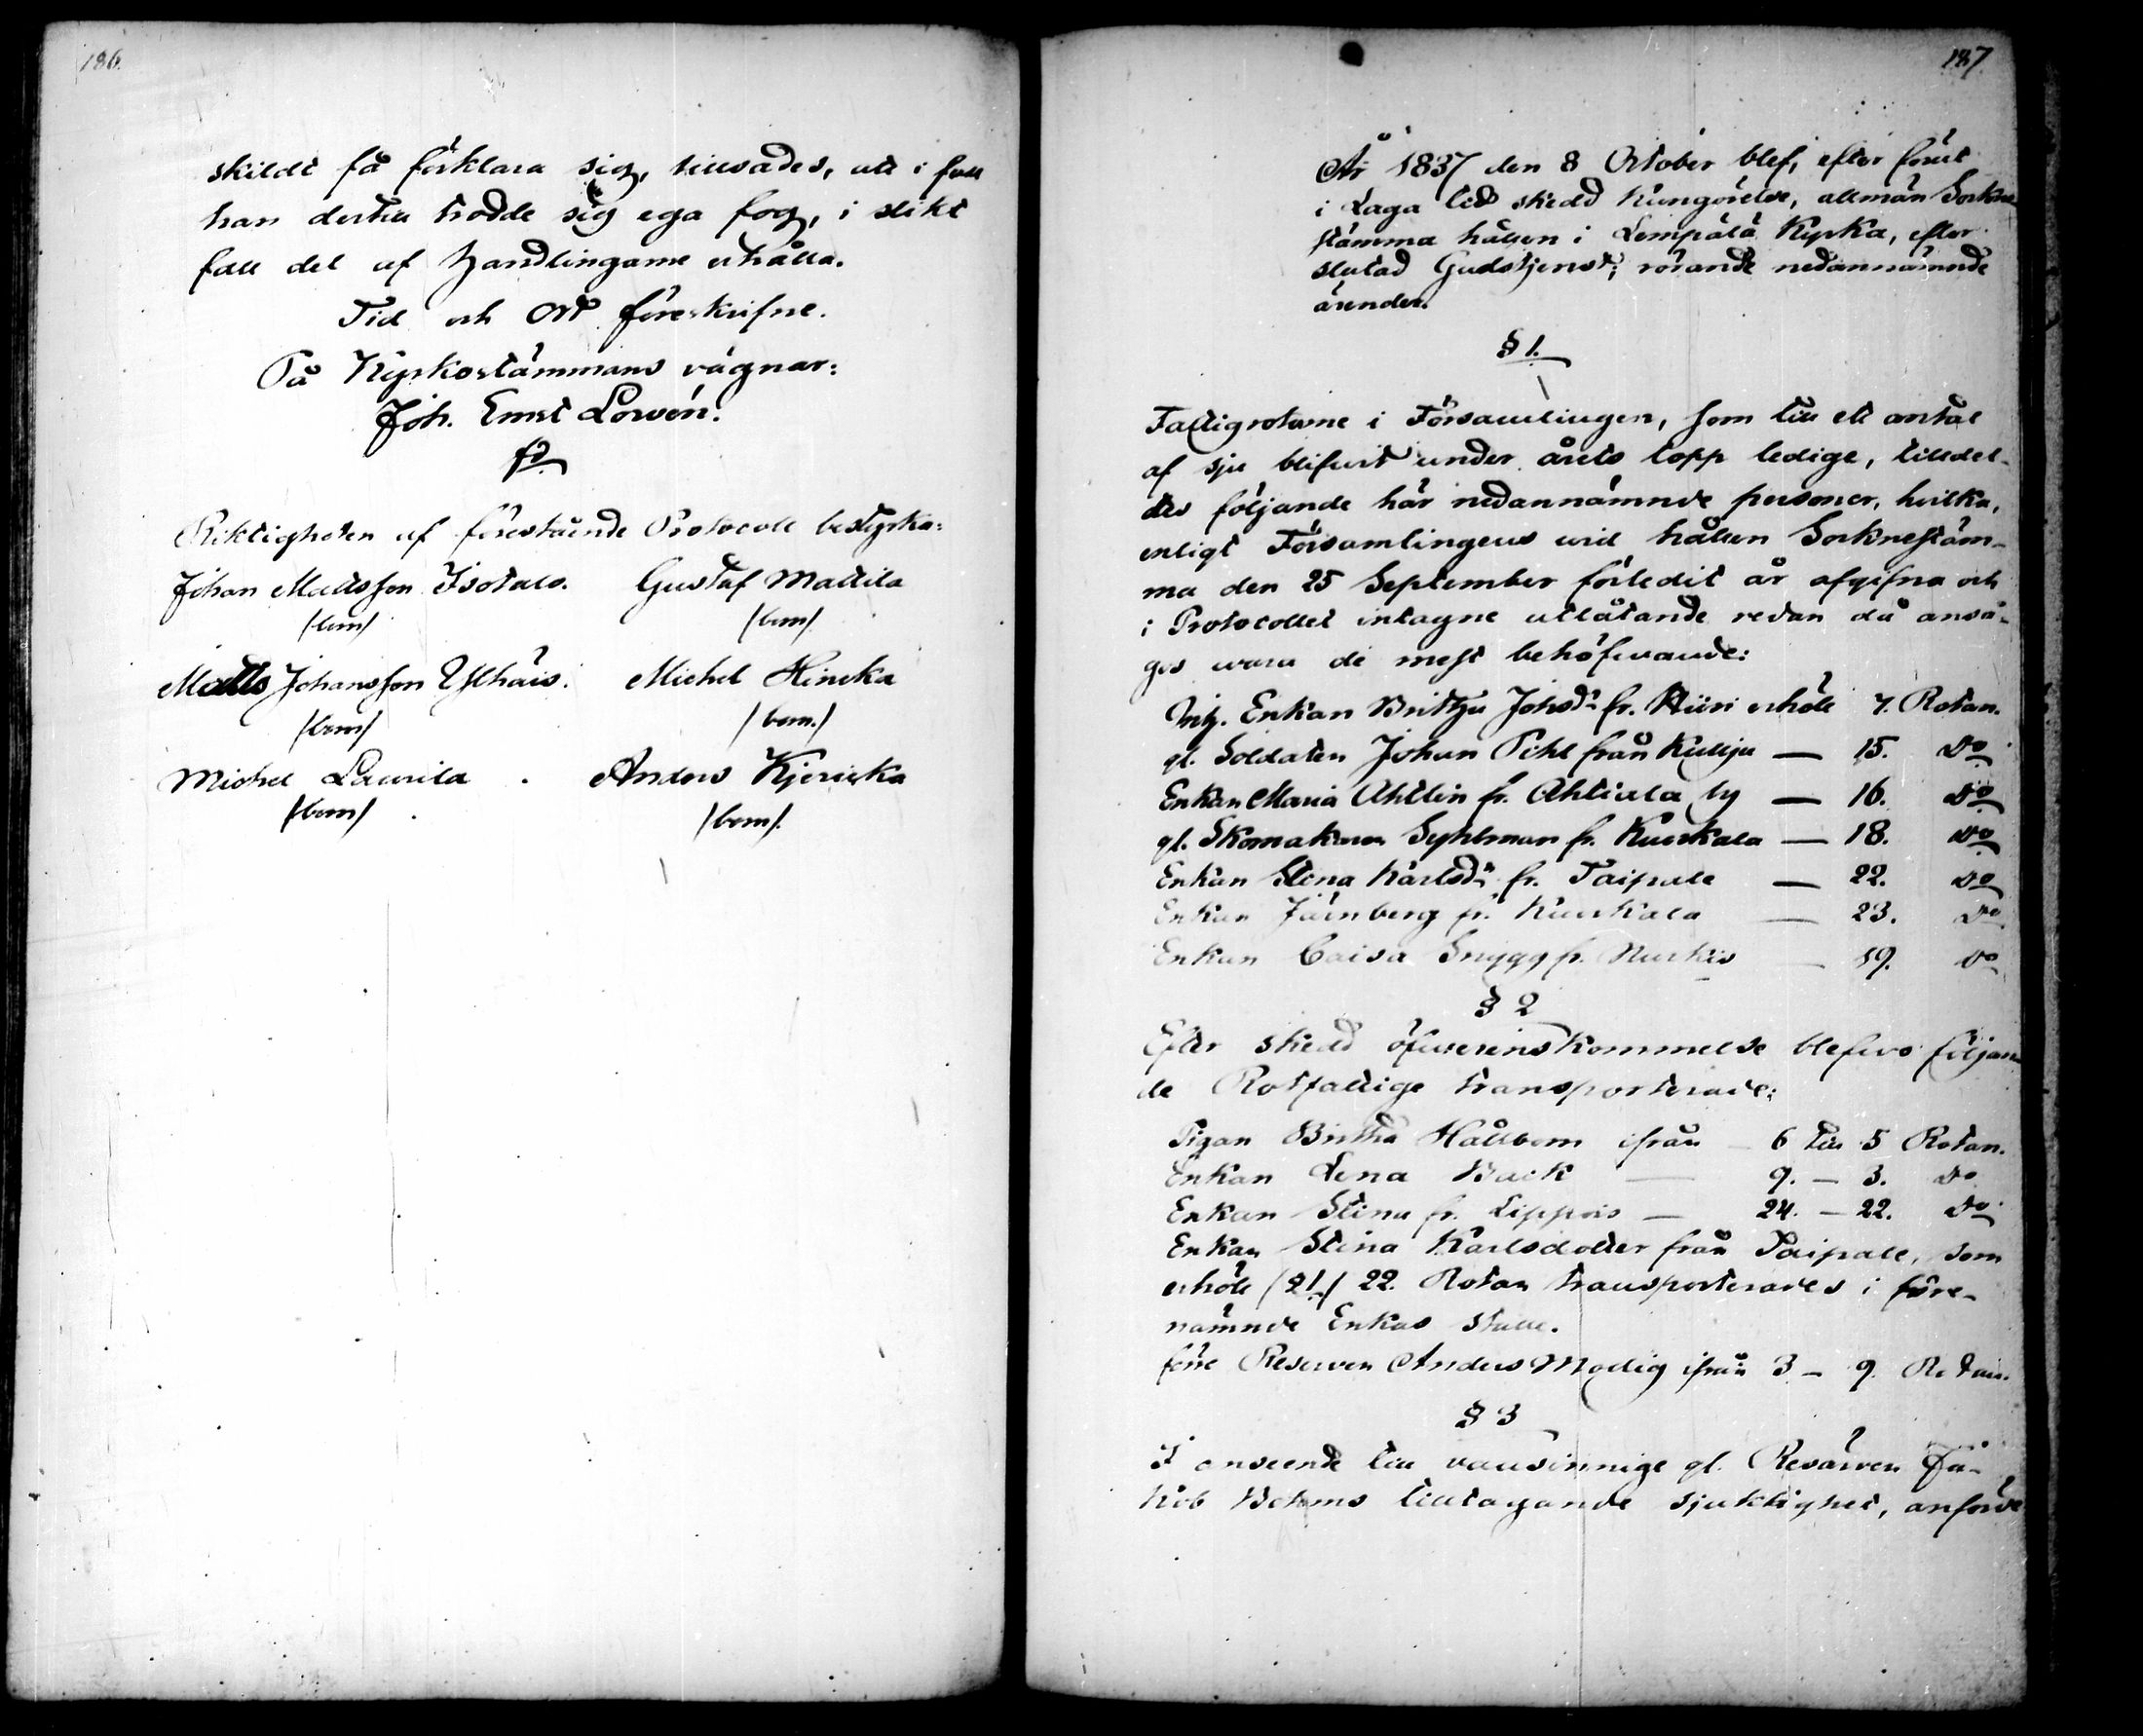 186.
skildt få förklara sig, tillsades, att i fall
han dertill trodde sig ega fog, i slikt
fall del af Handlingarne erhålla.
Tid och Ort föreskrifne.
På Kyrkostämmans vägnar:
Joh. Ernst Lovén.
Riktigheten af förestående Protocoll bestyrka:
Johan Mattsson Isotalo. Gustaf Mattila
/bom/ /bom/
Matts Johansson Ylhäis. Michel Hincka
/bom/ /bom./
Michel Laurila. Anders Kjericka
/bom/ /bom/.
187
År 1837 den 8 October blef, efter förut
i Laga tid skedd Kungörelse, allmän Sockne
stämma hållen i Lempälä Kyrka, efter
slutad Gudstjenst; rörande nedannämnde
ärender.
§ 1.
Fattigrotarne i Församlingen, som till ett antal
af sju blifvit under årets lopp ledige, tilldel-
des följande här nedannämnde personer, hvilka,
enligt Församlingens wid hållen Socknestäm-
ma den 25 September förledit år afgifna och
i Protocollet intagne utlåtande redan då anså-
ges wara de mest behöfvande:
Inh. Enkan Brittju Johsdr fr. Kiiri erhöll 7. Rotan.
gl. Soldaten Johan Pihl från Kullju — 15. Do
Enkan Maria Ahtlin fr. Ahtiala by — 16. Do
gl. Skomakaren Syhlman fr. Kuokkala — 18. Do
Enkan Stina Karlsdr fr. Taipale — 22. Do
Enkan Järnberg fr. Kuokkala — 23. Do
Enkan Caisa Snygg fr. Nurkis — 19. Do
§ 2
Efter skedd öfverenskommelse blefvo följan
de Rotfattige transporterade:
Pigan Britha Hållbom ifrån — 6 till 5 Rotan.
Enkan Lena Back — 9. — 3. Do
Enkan Stina fr. Lippois — 24. — 22. Do
Enkan Stina Karlsdotter från Taipale, som
erhöll (§ 1.) 22. Rotan transporterades i före-
nämnde Enkas ställe.
förre Reserven Anders Modig ifrån 3 — 9. Rotan.
§ 3
I anseende till vansinnige gl. Resärven Ja-
kob Bohms tilltagande sjuklighet, anförde